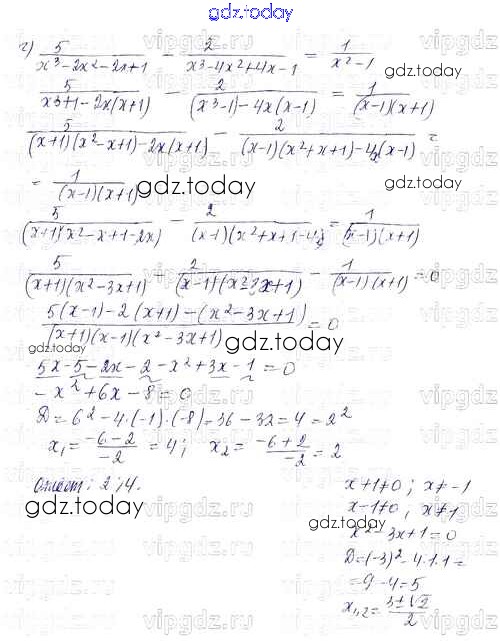 gdz.today
г) 5/(x³-2x²-2x+1) - 2/(x³-4x²+4x-1) = 1/(x²-1)
gdz.today
5/(x³+1-2x(x+1)) - 2/((x³-1)-4x(x-1)) = 1/((x-1)(x+1))
5/((x+1)(x²-x+1)-2x(x+1)) - 2/((x-1)(x²+x+1)-4x(x-1)) =
= 1/((x-1)(x+1))
gdz.today
gdz.today
5/((x+1)(x²-x+1-2x)) - 2/((x-1)(x²+x+1-4x)) = 1/((x-1)(x+1))
5/((x+1)(x²-3x+1)) - 2/((x-1)(x²-3x+1)) - 1/((x-1)(x+1)) = 0
gdz.today
(5(x-1)-2(x+1)-(x²-3x+1))/((x+1)(x-1)(x²-3x+1)) = 0
gdz.today
5x-5-2x-2-x²+3x-1=0
-x²+6x-8=0
gdz.today
D=6²-4·(-1)·(-8)=36-32=4=2²
x₁=(-6-2)/-2=4; x₂=(-6+2)/-2=2
gdz.today
Ответ: 2; 4.
gdz.today
x+1≠0; x≠-1
x-1≠0, x≠1
gdz.today
x²-3x+1=0
D=(-3)²-4·1·1=
=9-4=5
gdz.today
vipgdz.ru